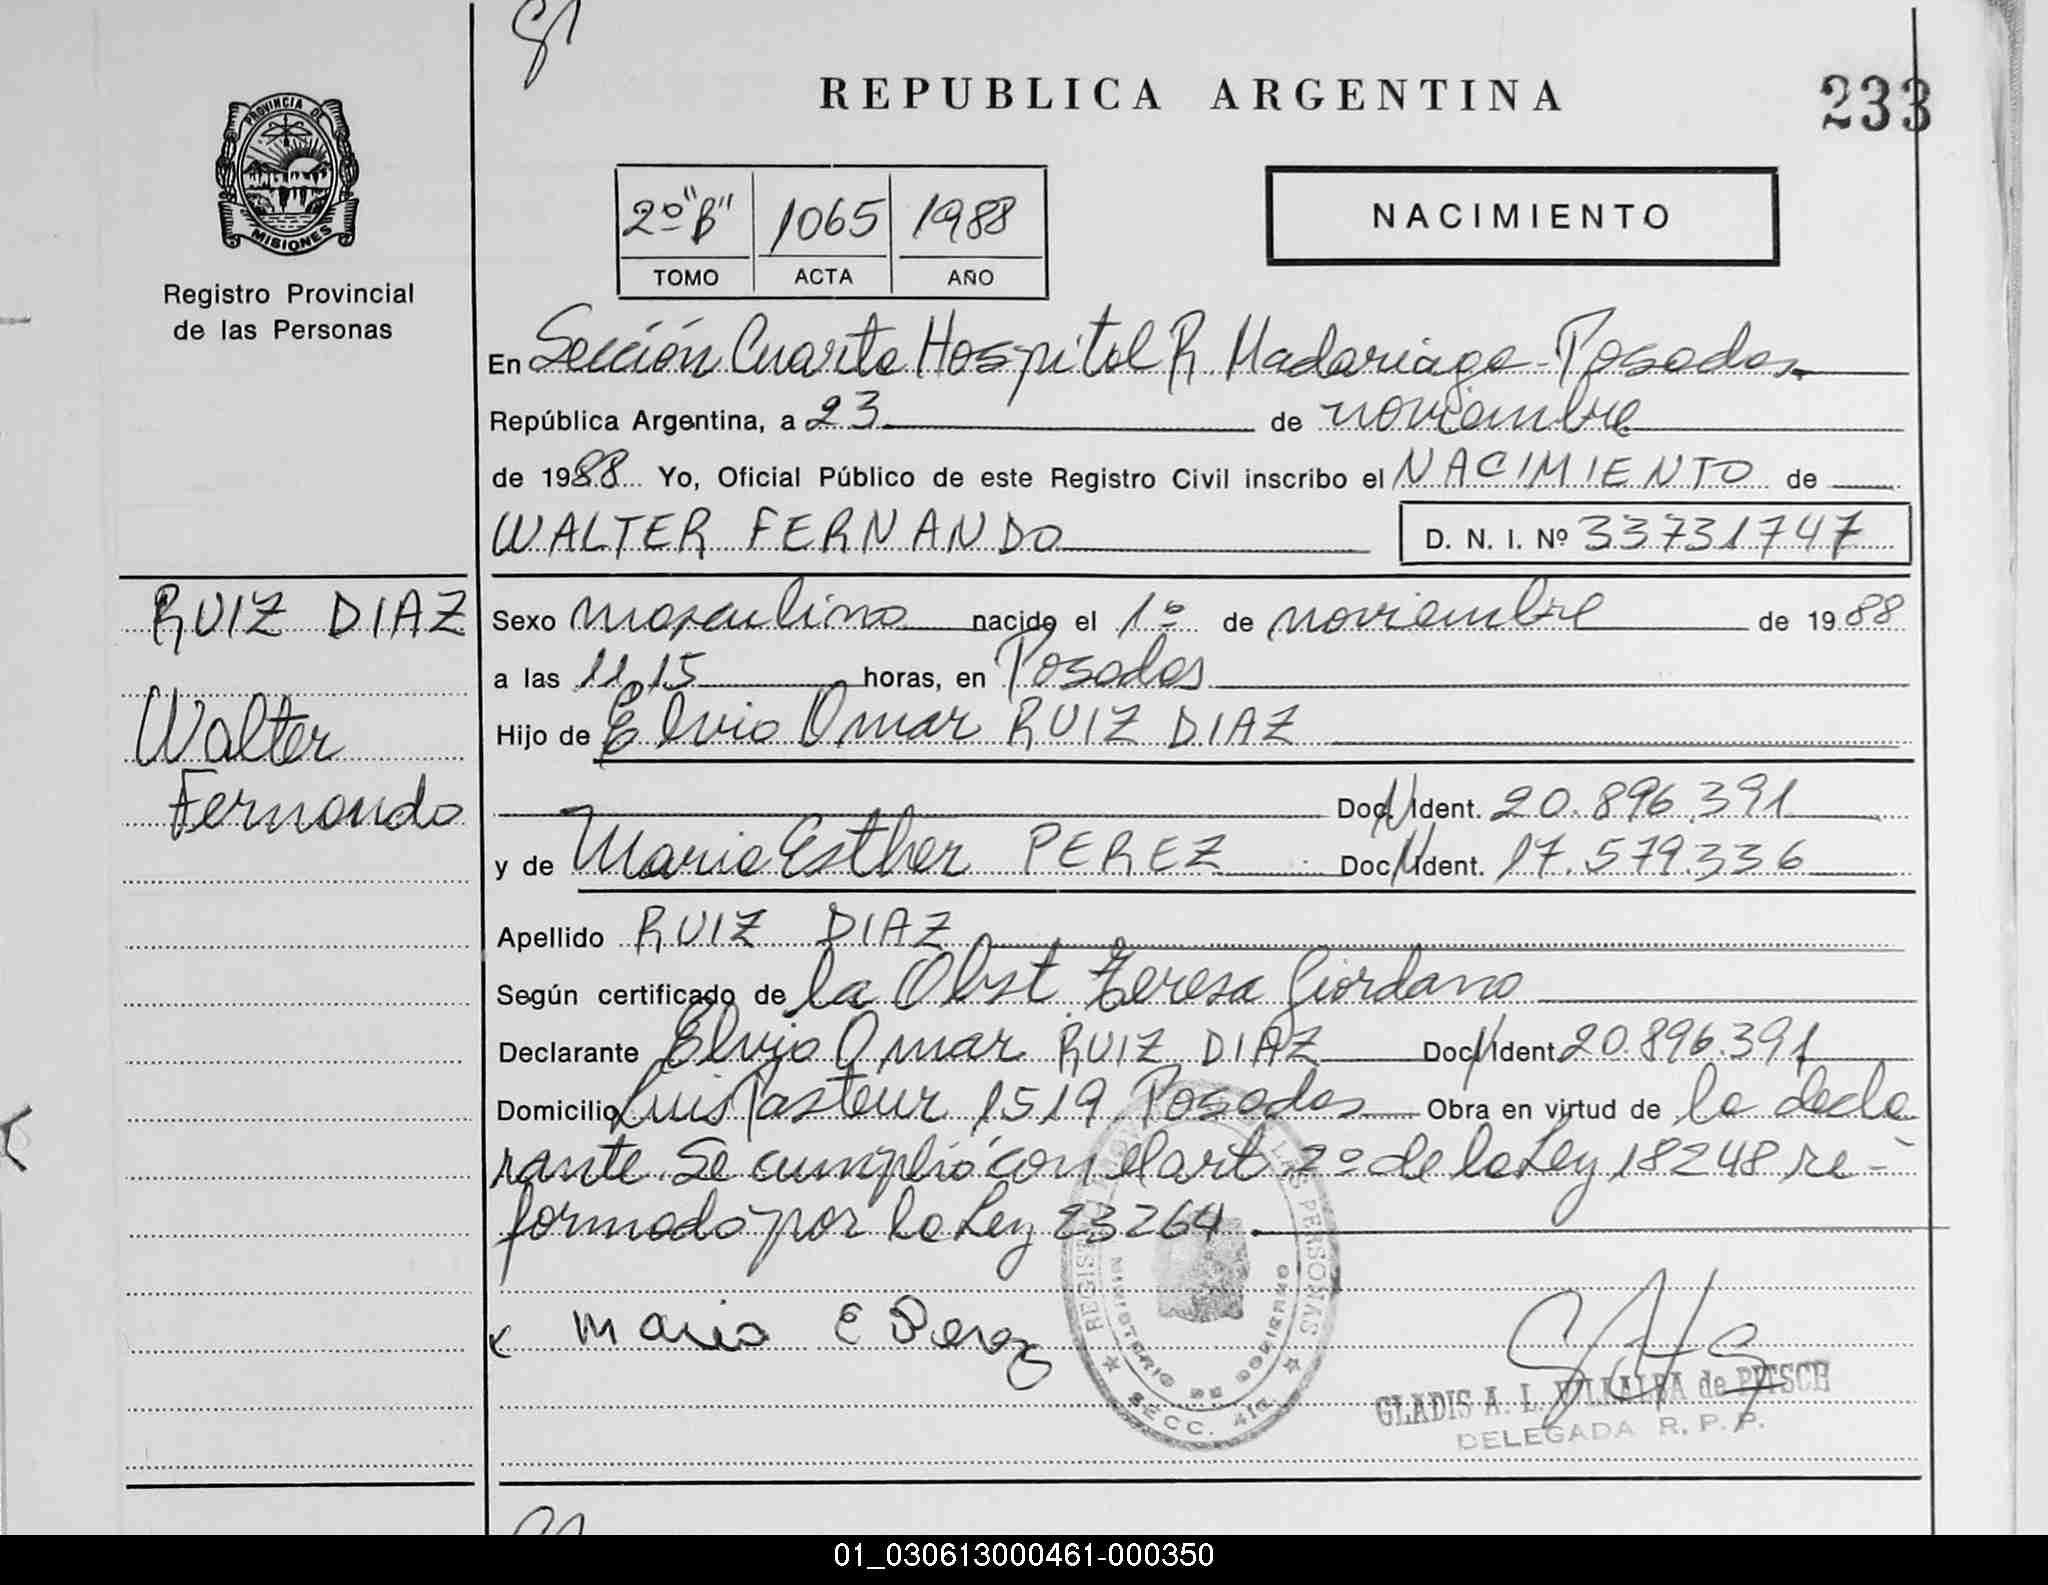 REPUBLICA ARGENTINA
233
PROVINCIA DE
MISIONES
Registro Provincial
de las Personas
2º "B" 1065 1988
TOMO ACTA AÑO
NACIMIENTO
En Sección Cuarta Hospital R. Madariaga - Posadas
República Argentina, a 23 de noviembre
de 1988 Yo, Oficial Público de este Registro Civil inscribo el NACIMIENTO de
WALTER FERNANDO D. N. I. Nº 33731747
RUIZ DIAZ
Walter
Fernando
Sexo masculino nacido el 1º de noviembre de 1988
a las 11,15 horas, en Posadas
Hijo de Elvio Omar RUIZ DIAZ
Doc. Ident. 20.896.391
y de Maria Esther PEREZ Doc. Ident. 17.579.336
Apellido RUIZ DIAZ
Según certificado de la Obst. Teresa Giordano
Declarante Elvio Omar RUIZ DIAZ Doc. Ident. 20.896.391
Domicilio Luis Pasteur 1519 Posadas Obra en virtud de la decla
rante. Se cumplió con el art 2º de la Ley 18248 re-
formado por la Ley 23264
Maria E Perez
REGISTRO LAS PERSONAS
MINISTERIO DE GOBIERNO
SECC. 4ta.
GLADIS A. L. VILLALBA de PITSCH
DELEGADA R. P. P.
01_030613000461-000350